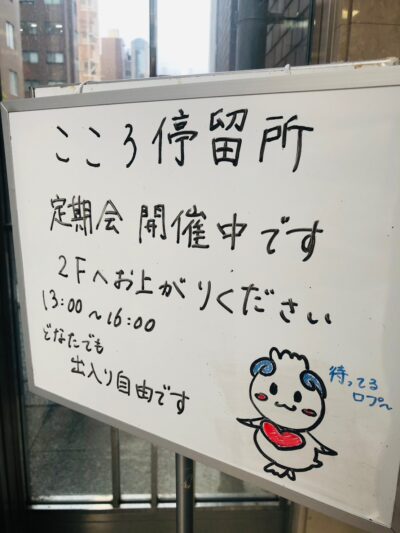 こころ停留所
定期会 開催中です
2Fへお上がりください
13:00～16:00
どなたでも
出入り自由です
待ってる
ロプ～